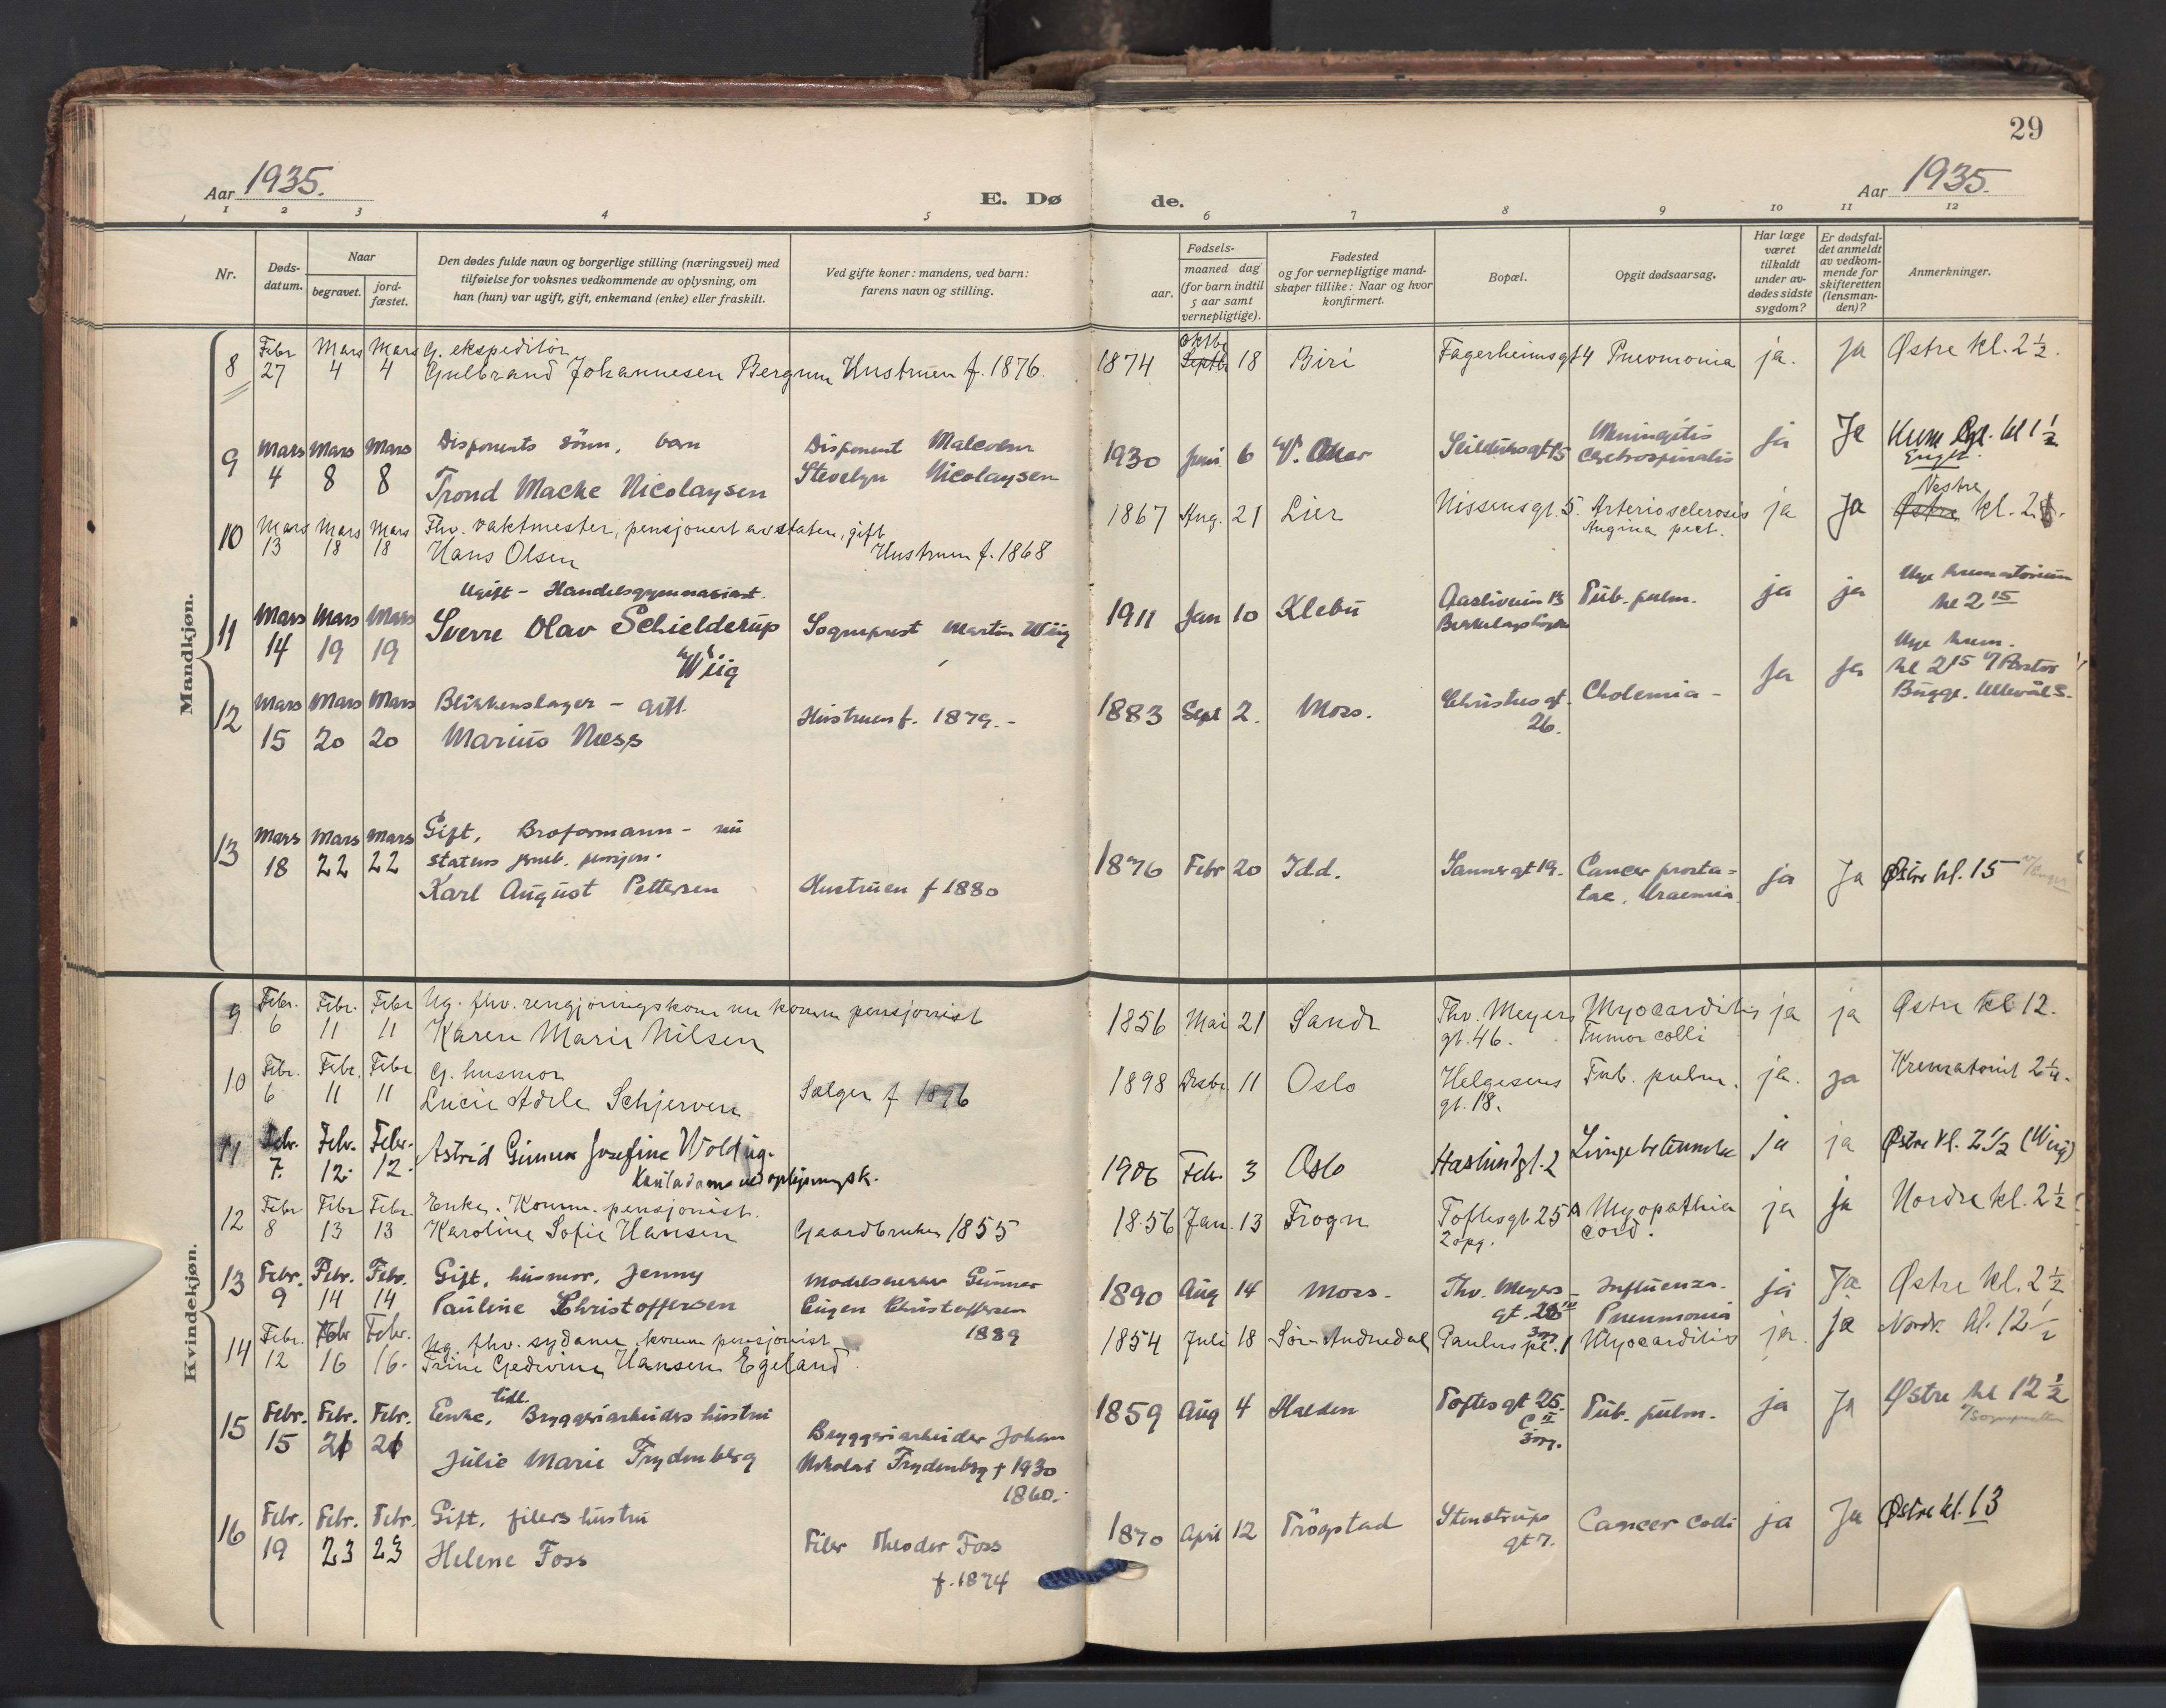 29
Aar 1935.
E. Dø de.
Aar 1935.
1 2 3 4 5 6 7 8 9 10 11 12
Nr.
Døds-
datum.
Naar
begravet.
jord-
fæstet.
Den dødes fulde navn og borgerlige stilling (næringsvei) med
tilføielse for voksnes vedkommende av oplysning, om
han (hun) var ugift, gift, enkemand (enke) eller fraskilt.
Ved gifte koner: mandens, ved barn:
farens navn og stilling.
Fødsels-
aar.
maaned dag
(for barn indtil
5 aar samt
vernepligtige).
Fødested
og for vernepligtige mand-
skaper tillike: Naar og hvor
konfirmert.
Bopæl.
Opgit dødsaarsag.
Har læge
været
tilkaldt
under av-
dødes sidste
sygdom?
Er dødsfal-
det anmeldt
av vedkom-
mende for
skifteretten
(lensman-
den)?
Anmerkninger.
Mandkjøn.
8 Febr 27 Mars 4 Mars 4
G. ekspeditör
Gulbrand Johannesen Bergum Hustruen f. 1876.
1874 Oktbr Septbr 18 Biri Fagerheimsgt 4 Pneumonia ja. Ja Østre kl. 2 1/2.
9 Mars 4 Mars 8 Mars 8
Disponents sönn, barn
Trond Macke Nicolaysen
Disponent Malcolm
Stevelyn Nicolaysen
1930 Juni 6 V. Aker Seilduksgt 15 Meningitis
Cerebrospinalis ja Ja
10 Mars 13 Mars 18 Mars 18
Fhv. vaktmester, pensjonert av staten, gift
Hans Olsen Hustruen f. 1868
1867 Aug. 21 Lier Nissensgt. 5. Arteriosclerosis
Angina pect. ja Ja Vestre
Østre kl. 2
11 Mars 14 Mars 19 Mars 19
Ugift - Handelsgymnasiast.
Sverre Olav Schielderup
Wiig
Sogneprest Martin Wiig
1911 Jan 10 Klebu Aasliveien 13 Tub. pulm. ja ja Nye krematorium
kl 2 15
12 Mars 15 Mars 20 Mars 20
Blikkenslager - gift.
Marius Næss
Hustruen f. 1879.-
1883 Sept 2. Moss. Christies gt.
26. Cholemia - Ja Ja Nye krem.
kl 2 15 v/ Pastor
Bugge. Ullevål S.
13 Mars 18 Mars 22 Mars 22
Gift, Broformann - nu
statens jernb. pensjon.
Karl August Pettersen
Hustruen f 1880
1876 Febr 20 Idd. Sannergt 19. Cancer prosta=
tae, Uraemia. ja Ja Østre kl. 15
Kvindekjøn.
9 Febr. 6 Febr. 11 Febr 11
Ug. fhv. rengjöringskone nu komm pensjonist
Karen Marie Nilsen
1856 Mai 21 Sande Thv. Meyers
gt. 46. Myocarditis
Tumor colli ja ja Østre kl 12.
10 Febr. 6 Febr. 11 Febr 11
G. husmor
Lucie Adele Schjerven
Selger f 1896
1898 Desbr. 11 Oslo Helgesens
gt. 18. Tub. pulm. ja. ja Krematoriet 2 1/4.
11 Febr. 7. Febr. 12. Febr. 12.
Astrid Gunvor Josefine Wold ug.
Kontordame ved oplysningsk.
1906 Febr 3 Oslo Haslundgt. 2 Lungebetennelse ja ja Østre kl. 2 1/2 (Wiig)
12 Febr 8 Febr 13 Febr. 13
Enke. Komm. pensjonist.
Karoline Sofie Hansen
Gaardbruker 1855
1856 Jan 13 Frogn Toftesgt 25 A
2 opg. Myopathia
cord. ja ja Nordre kl. 2 1/2
13 Febr. 9 Febr. 14 Febr. 14
Gift, husmor, Jenny
Pauline Christoffersen
Modelsnekker Gunnar
Eugen Christoffersen
1889
1890 Aug 14 Moss. Thv. Meyers
gt. 26 Influenza.
Pneumonia ja Ja Østre kl. 2 1/2
14 Febr. 12 Febr 16 Febr. 16.
Ug. fhv. sydame, komm pensjonist
Trine Gedevine Hansen Egeland
1854 Juli 18 Sör-Audnedal Paulus pl. 1 Myocarditis ja. Ja Nordr. kl. 12 1/2
15 Febr. 15 Febr. 21 Febr. 21
Enke, tidl. Bryggeriarbeiders hustru
Julie Marie Frydenberg
Bryggeriarbeider Johan
Nikolai Frydenberg + 1930
1860.
1859 Aug 4 Halden Toftesgt 25.
C II
3 opg. Tub. pulm. ja Ja Østre kl 12 1/2
16 Febr. 19 Febr. 23 Febr. 23
Gift, filers hustru
Helene Foss
Filer Theodor Foss
f. 1874
1870 April 12 Trögstad Stenstrups
gt 7. Cancer coli ja Ja Østre kl. 13